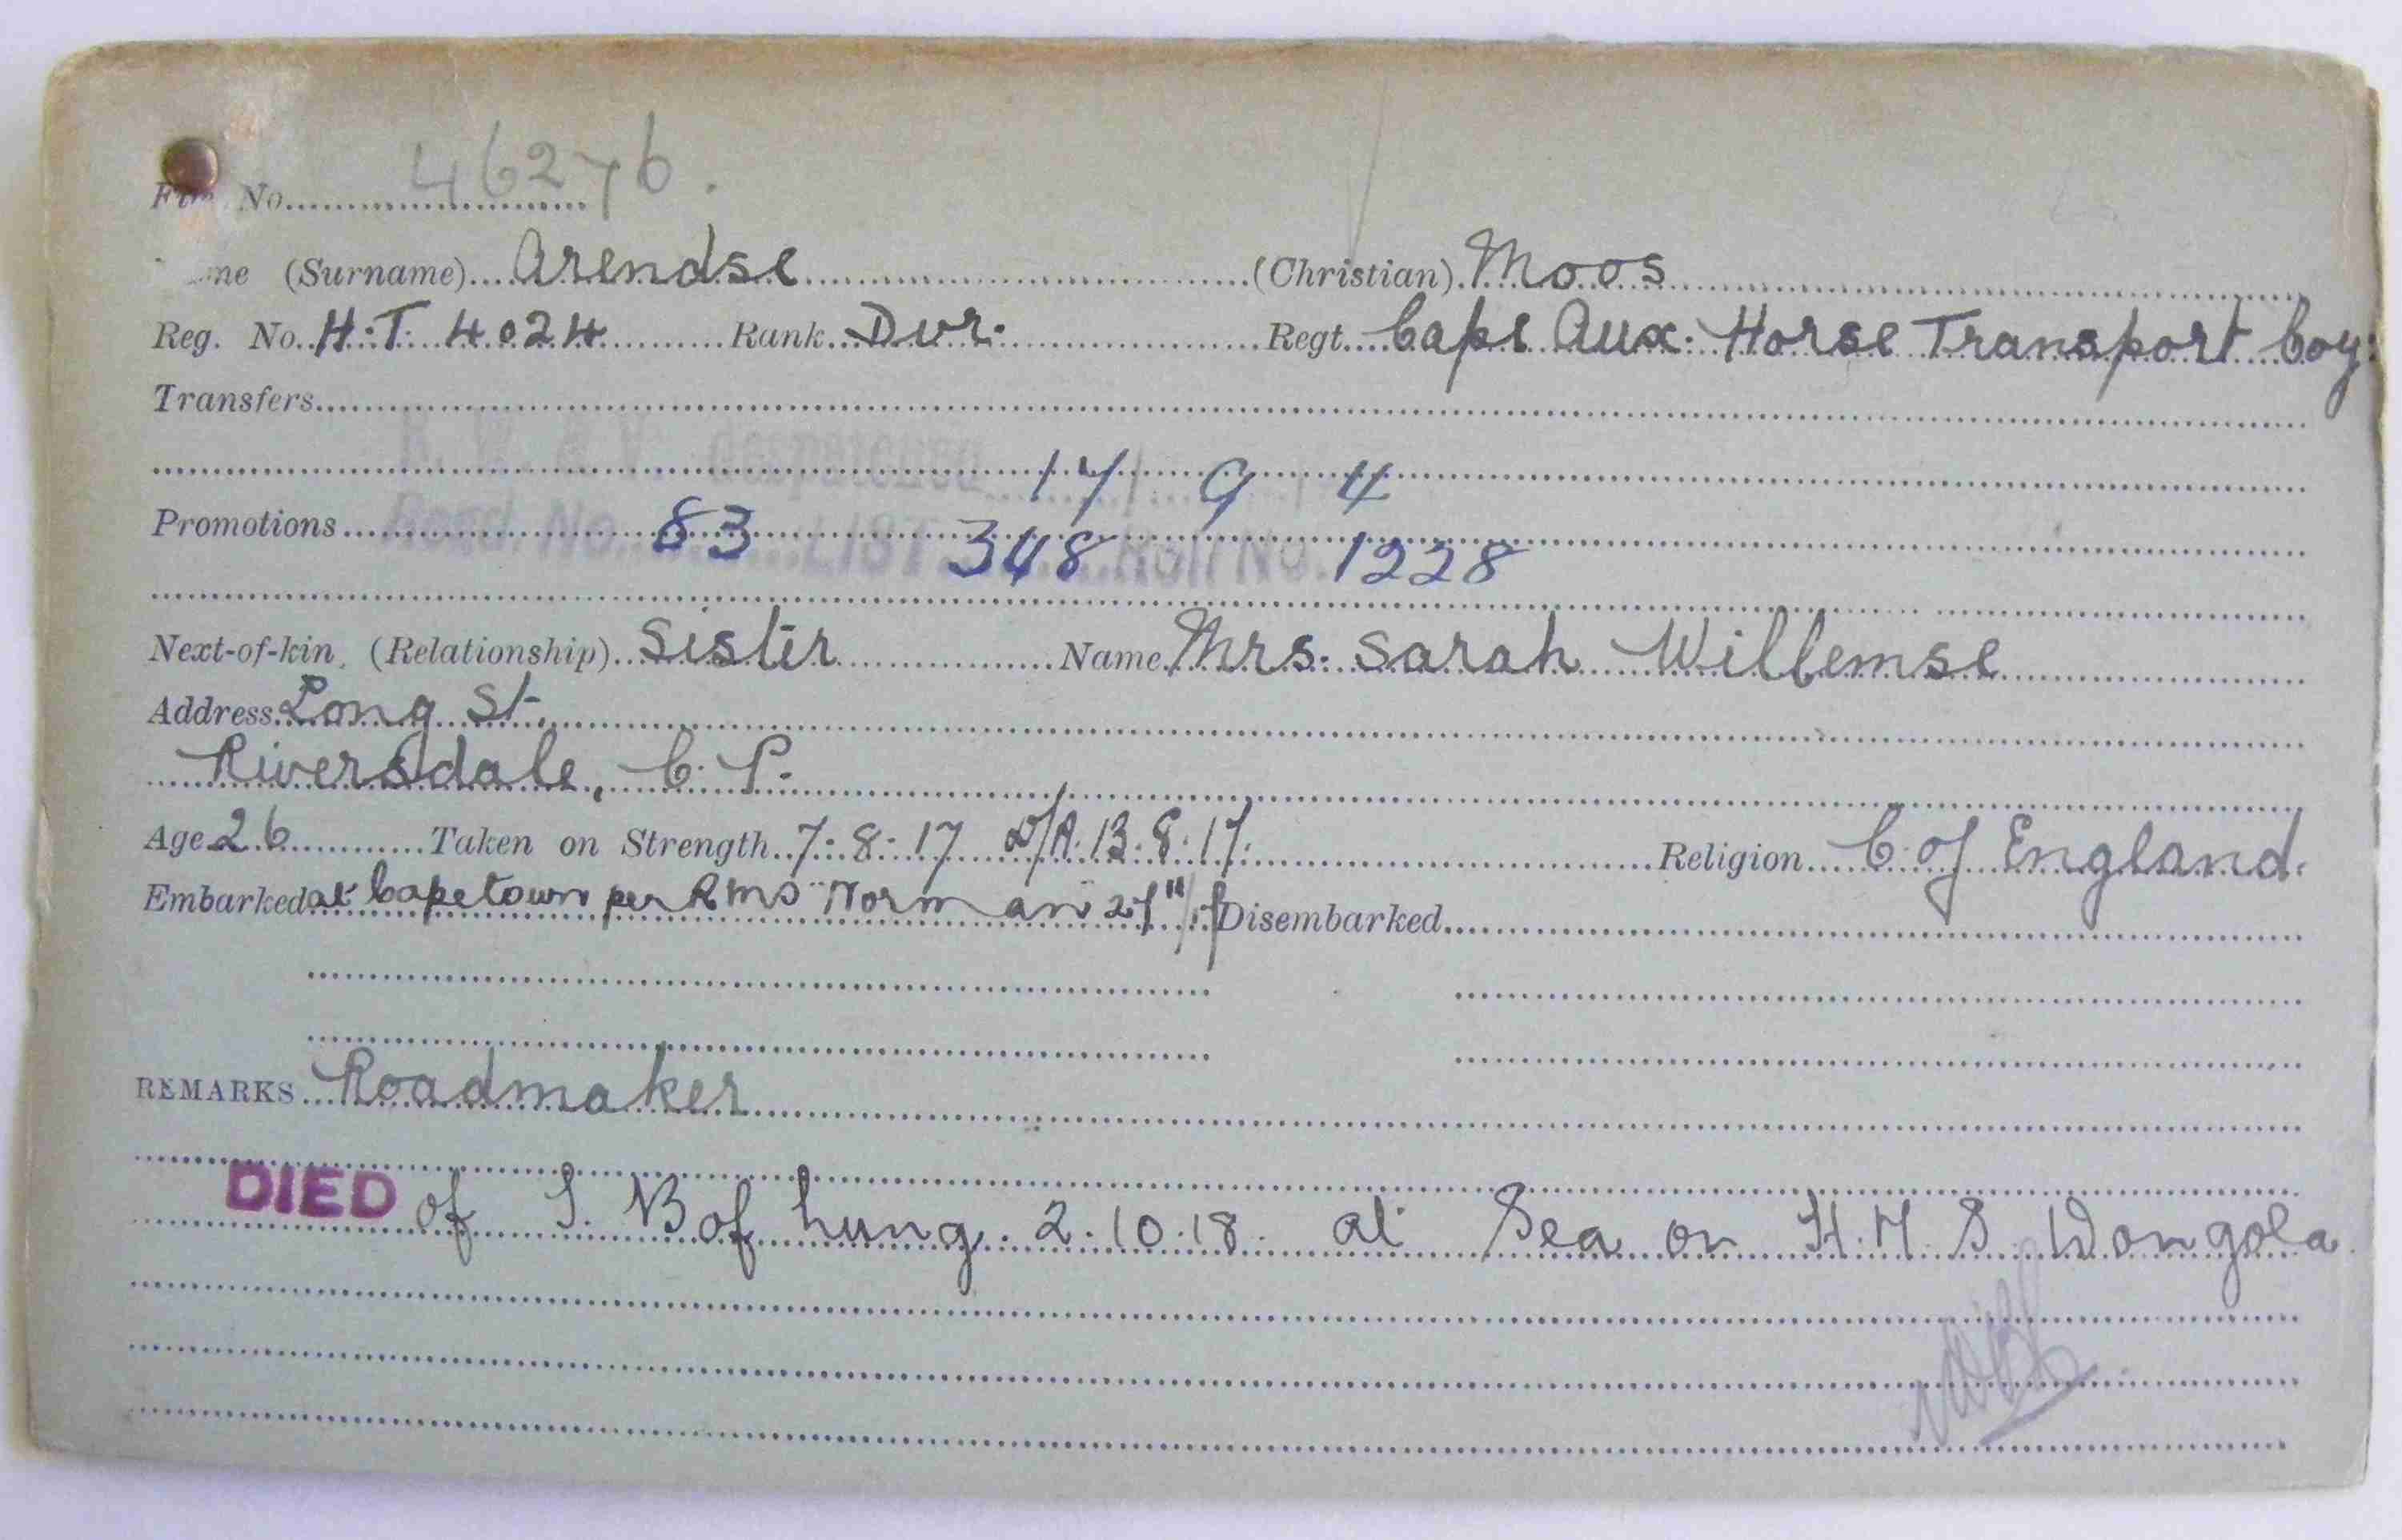 File No. 46276.
(Surname) Arendse (Christian) Moos
Reg. No. H.T. 4024 Rank Dvr. Regt. Cape Aux. Horse Transport Coy:
Transfers
B. W. & V. despatched 17 9 4
Promotions
Regd. No. 83 LIST 348 Roll No. 1228
Next-of-kin, (Relationship) Sister Name Mrs. Sarah Willemse
Address Long St.
Riversdale, C. P.
Age 26 Taken on Strength 7-8-17 D/A. 13.8.17. Religion C. of England.
Embarked at Capetown per RMS "Norman Disembarked
REMARKS Roadmaker
DIED of T. B of Lung. 2.10.18. at Sea on H.M.S. Dongola